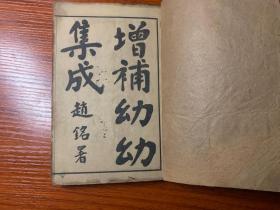 增補幼幼
集成
趙銘署